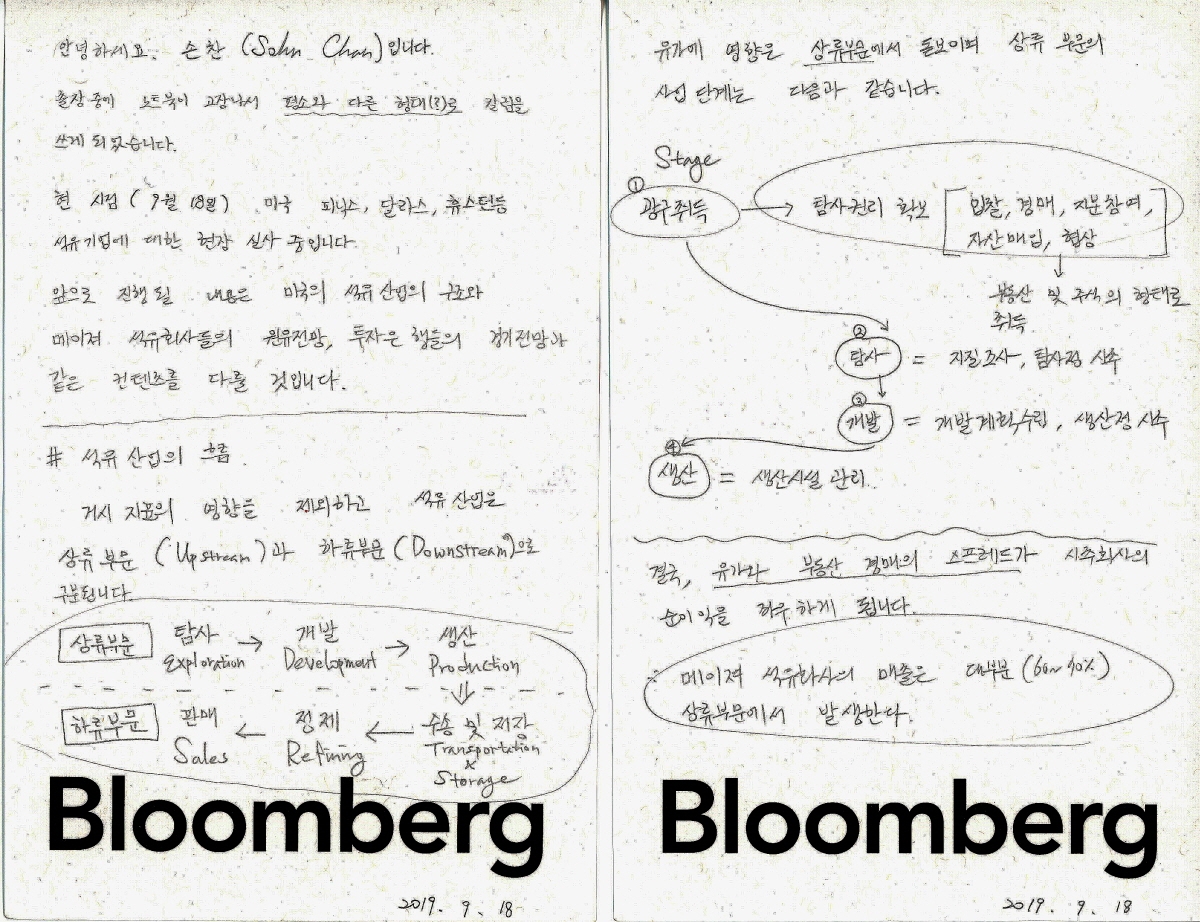 안녕하세요. 손찬 (Sohn Chan)입니다.
출장중에 노트북이 고장나서 평소와 다른 형태(?)로 칼럼을
쓰게 되었습니다.
현 시점 (9월 18일) 미국 피닉스, 달라스, 휴스턴등
석유기업에 대한 현장 실사 중입니다.
앞으로 진행될 내용은 미국의 석유산업의 구조와
메이져 석유회사들의 원유전망, 투자은행들의 경기전망과
같은 컨텐츠를 다룰 것입니다.
# 석유산업의 흐름
거시 지표의 영향을 제외하고 석유산업은
상류부문 (Upstream)과 하류부문(Downstream)으로
구분됩니다.
상류부문 탐사 → 개발 → 생산
Exploration Development Production
하류부문 판매 ← 정제 ← 수송 및 저장
Sales Refining Transportation
& Storage
Bloomberg
2019. 9. 18
유가에 영향은 상류부문에서 돋보이며 상류 부문의
사업 단계는 다음과 같습니다.
Stage
① 광구취득 → 탐사권리 확보 [입찰, 경매, 지분참여,
자산매입, 협상]
부동산 및 주식의 형태로
취득
② 탐사 = 지질조사, 탐사정 시추
③ 개발 = 개발계획수립, 생산정 시추
④ 생산 = 생산시설 관리
결국, 유가와 부동산 경매의 스프레드가 시추회사의
순이익을 좌우하게 됩니다.
메이져 석유회사의 매출은 대부분 (60~90%)
상류부문에서 발생한다.
Bloomberg
2019. 9. 18